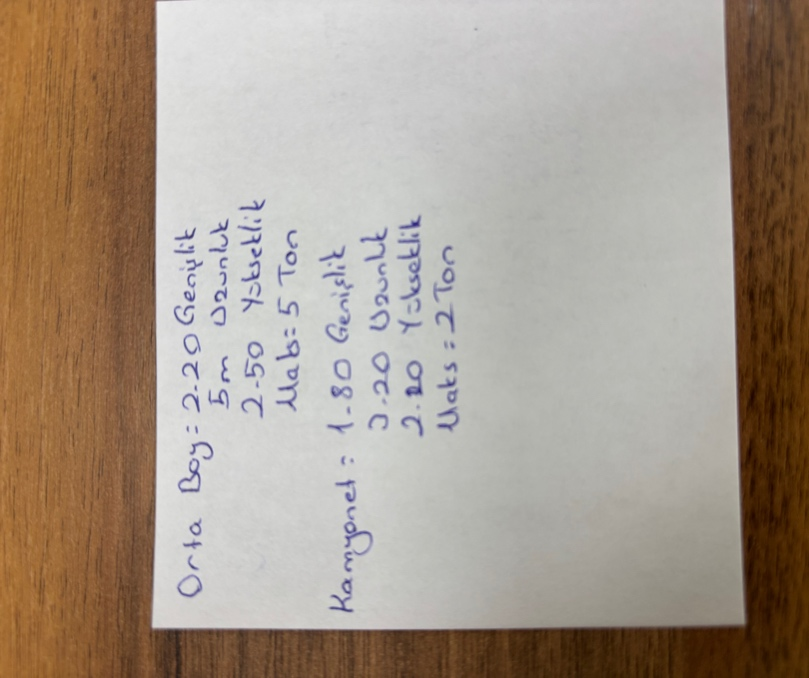 Orta Boy = 2.20 Genişlik
5m Uzunluk
2.50 Yükseklik
Maks = 5 Ton
Kamyonet = 1.80 Genişlik
3.20 Uzunluk
2.20 Yükseklik
Maks = 2 Ton